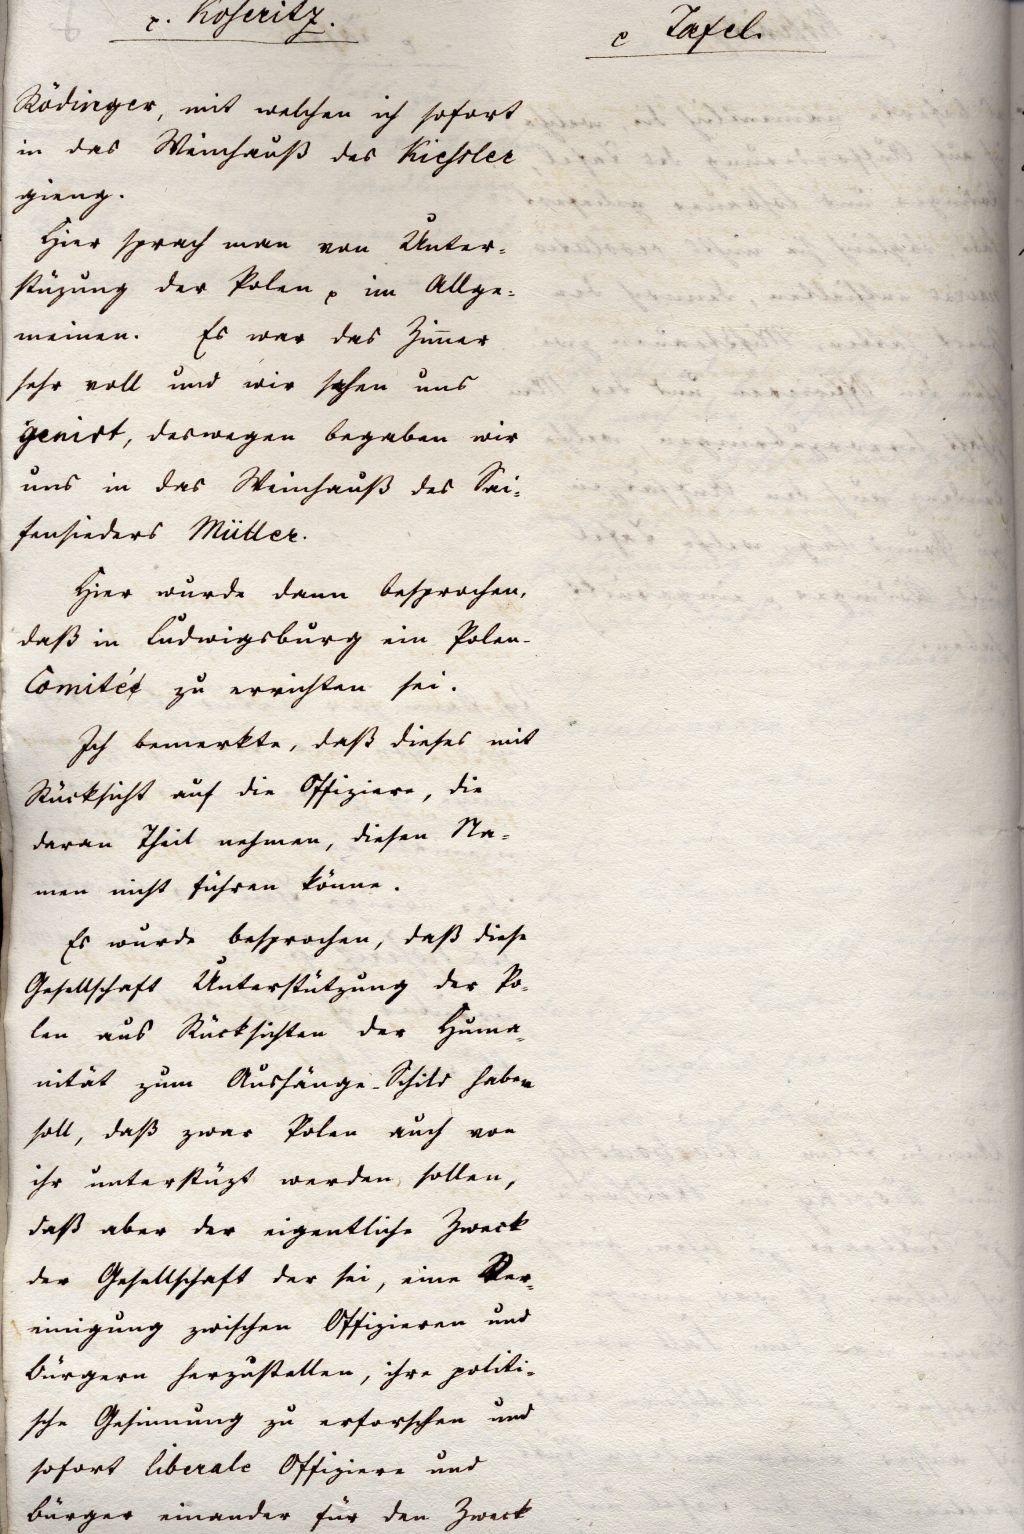 c. Koseritz.
c Tafel.
Rödinger, mit welchen ich sofort
in das Weinhauß des Kiessler
gieng.
Hier sprach man von Unter-
stüzung der Polen, im Allge-
meinen. Es war das Zimer
sehr voll und wir sahen uns
genirt, deswegen begaben wir
uns in das Weinhauß des Sai-
fensieders Müller.
Hier wurde dann besprochen,
daß in Ludwigsburg ein Polen-
Comité zu errichten sei.
Ich bemerkte, daß dieses mit
Rücksicht auf die Offiziere, die
daran Theil nehmen, diesen Na-
men nicht führen könne.
Es wurde besprochen, daß diese
Gesellschaft Unterstützung der Po-
len aus Rücksichten der Huma-
nität zum Aushänge-Schild haben
soll, daß zwar Polen auch von
ihr unterstüzt werden sollen,
daß aber der eigentliche Zweck
der Gesellschaft der sei, eine Ver-
einigung zwischen Offizieren und
Bürgern herzustellen, ihre politi-
sche Gesinnung zu erforschen und
sofort liberale Offiziere und
Bürger einander für den Zweck